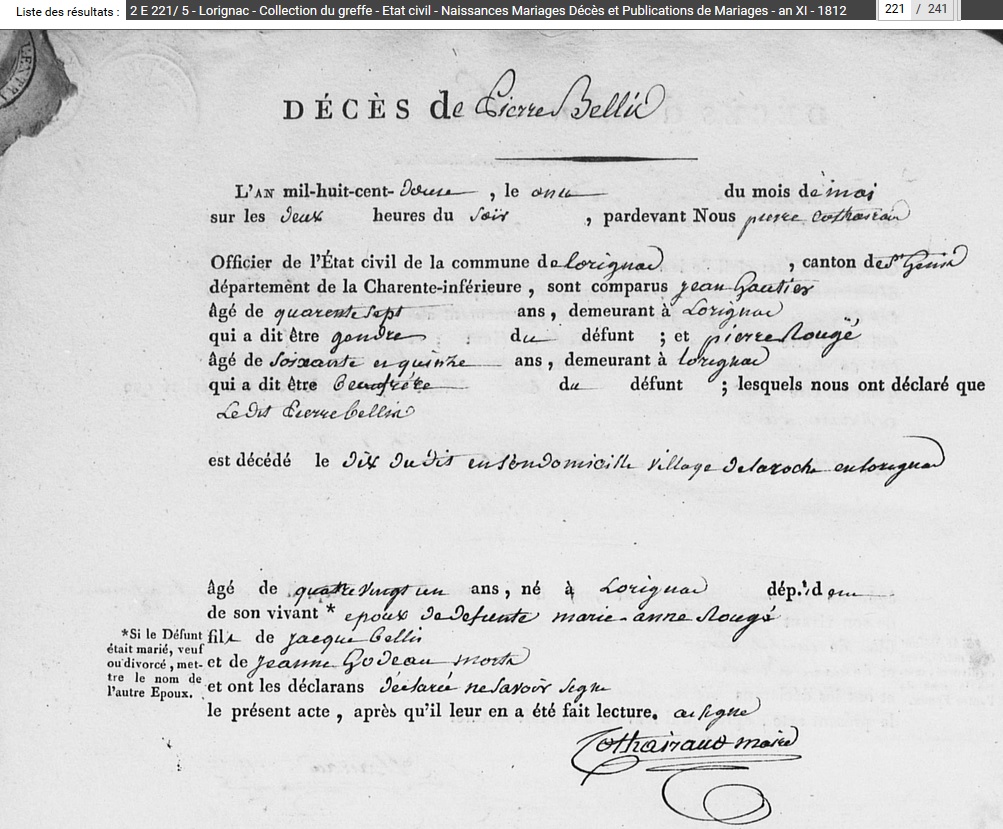 Liste des résultats : 2 E 221/ 5 - Lorignac - Collection du greffe - Etat civil - Naissances Mariages Décès et Publications de Mariages - an XI - 1812 221 / 241
DÉCÈS de Pierre Bellin
L'AN mil-huit-cent- douze , le onze du mois de mai
sur les deux heures du soir , pardevant Nous pierre
Officier de l'État civil de la commune de lorignac , canton de St Genis
département de la Charente-inférieure , sont comparus jean Gautier
Âgé de quarente sept ans , demeurant à Lorignac
qui a dit être gendre du défunt ; et pierre Rougé
Âgé de soixante et quinze ans , demeurant à lorignac
qui a dit être beaufrere du défunt ; lesquels nous ont déclaré que
Le dit Pierre bellin
est décédé le dix dudit en son domicille village de laroche en lorignac
Âgé de quatre vingt un ans , né à Lorignac dép.t d
de son vivant * epoux de defunte marie-anne Rougé
*Si le Défunt était marié, veuf ou divorcé, mettre le nom de l'autre Epoux.
fils de jacque bellin
et de jeanne Godeau morts
et ont les déclarans déclaré ne savoir signe
le présent acte , après qu'il leur en a été fait lecture. a signe
maire